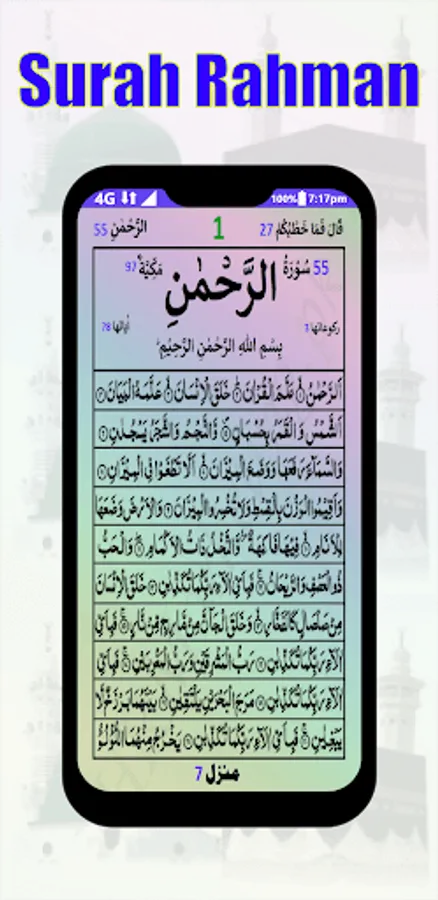 Surah Rahman
4G 100% 7:17pm
قَالَ فَمَا خَطْبُكُمْ 27 1 الرَّحْمٰنِ 55
55 سُوْرَةُ الرَّحْمٰنِ مَكِّيَّةٌ 97
رکوعاتها ٣ اٰیاتها 78
بِسْمِ اللهِ الرَّحْمٰنِ الرَّحِيْمِ
اَلرَّحْمٰنُ ۙ عَلَّمَ الْقُرْاٰنَ ؕ خَلَقَ الْاِنْسَانَ ۙ عَلَّمَهُ الْبَيَانَ
اَلشَّمْسُ وَ الْقَمَرُ بِحُسْبَانٍ ۪ وَّ النَّجْمُ وَ الشَّجَرُ يَسْجُدٰنِ
وَ السَّمَآءَ رَفَعَهَا وَ وَضَعَ الْمِيْزَانَ ۙ اَلَّا تَطْغَوْا فِي الْمِيْزَانِ
وَ اَقِيْمُوا الْوَزْنَ بِالْقِسْطِ وَ لَا تُخْسِرُوا الْمِيْزَانَ وَ الْاَرْضَ وَضَعَهَا
لِلْاَنَامِ ۙ فِيْهَا فَاكِهَةٌ ۪ۙ وَّ النَّخْلُ ذَاتُ الْاَكْمَامِ ۖ وَ الْحَبُّ
ذُو الْعَصْفِ وَ الرَّيْحَانُ ۚ فَبِاَيِّ اٰلَآءِ رَبِّكُمَا تُكَذِّبٰنِ خَلَقَ الْاِنْسَانَ
مِنْ صَلْصَالٍ كَالْفَخَّارِ ۙ وَ خَلَقَ الْجَآنَّ مِنْ مَّارِجٍ مِّنْ نَّارٍ ۚ فَبِاَيِّ
اٰلَآءِ رَبِّكُمَا تُكَذِّبٰنِ رَبُّ الْمَشْرِقَيْنِ وَ رَبُّ الْمَغْرِبَيْنِ ۚ فَبِاَيِّ
اٰلَآءِ رَبِّكُمَا تُكَذِّبٰنِ مَرَجَ الْبَحْرَيْنِ يَلْتَقِيٰنِ ۙ بَيْنَهُمَا بَرْزَخٌ لَّا
يَبْغِيٰنِ ۚ فَبِاَيِّ اٰلَآءِ رَبِّكُمَا تُكَذِّبٰنِ يَخْرُجُ مِنْهُمَا اللُّؤْلُؤُ
منزل 7